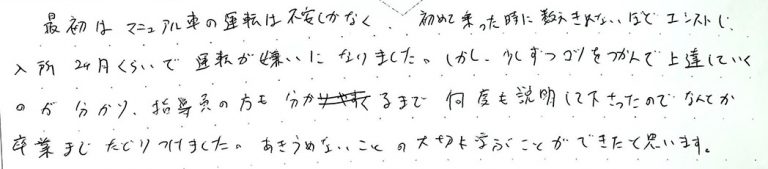 最初はマニュアル車の運転は不安しかなく、初めて乗った時に数えきれないほどエンストし、
入所2ヶ月くらいで運転が嫌いになりました。しかし、少しずつコツをつかんで上達していく
のが分かり、指導員の方も分かるまで何度も説明して下さったのでなんとか
卒業までたどりつけました。あきらめないことの大切さを学ぶことができたと思います。